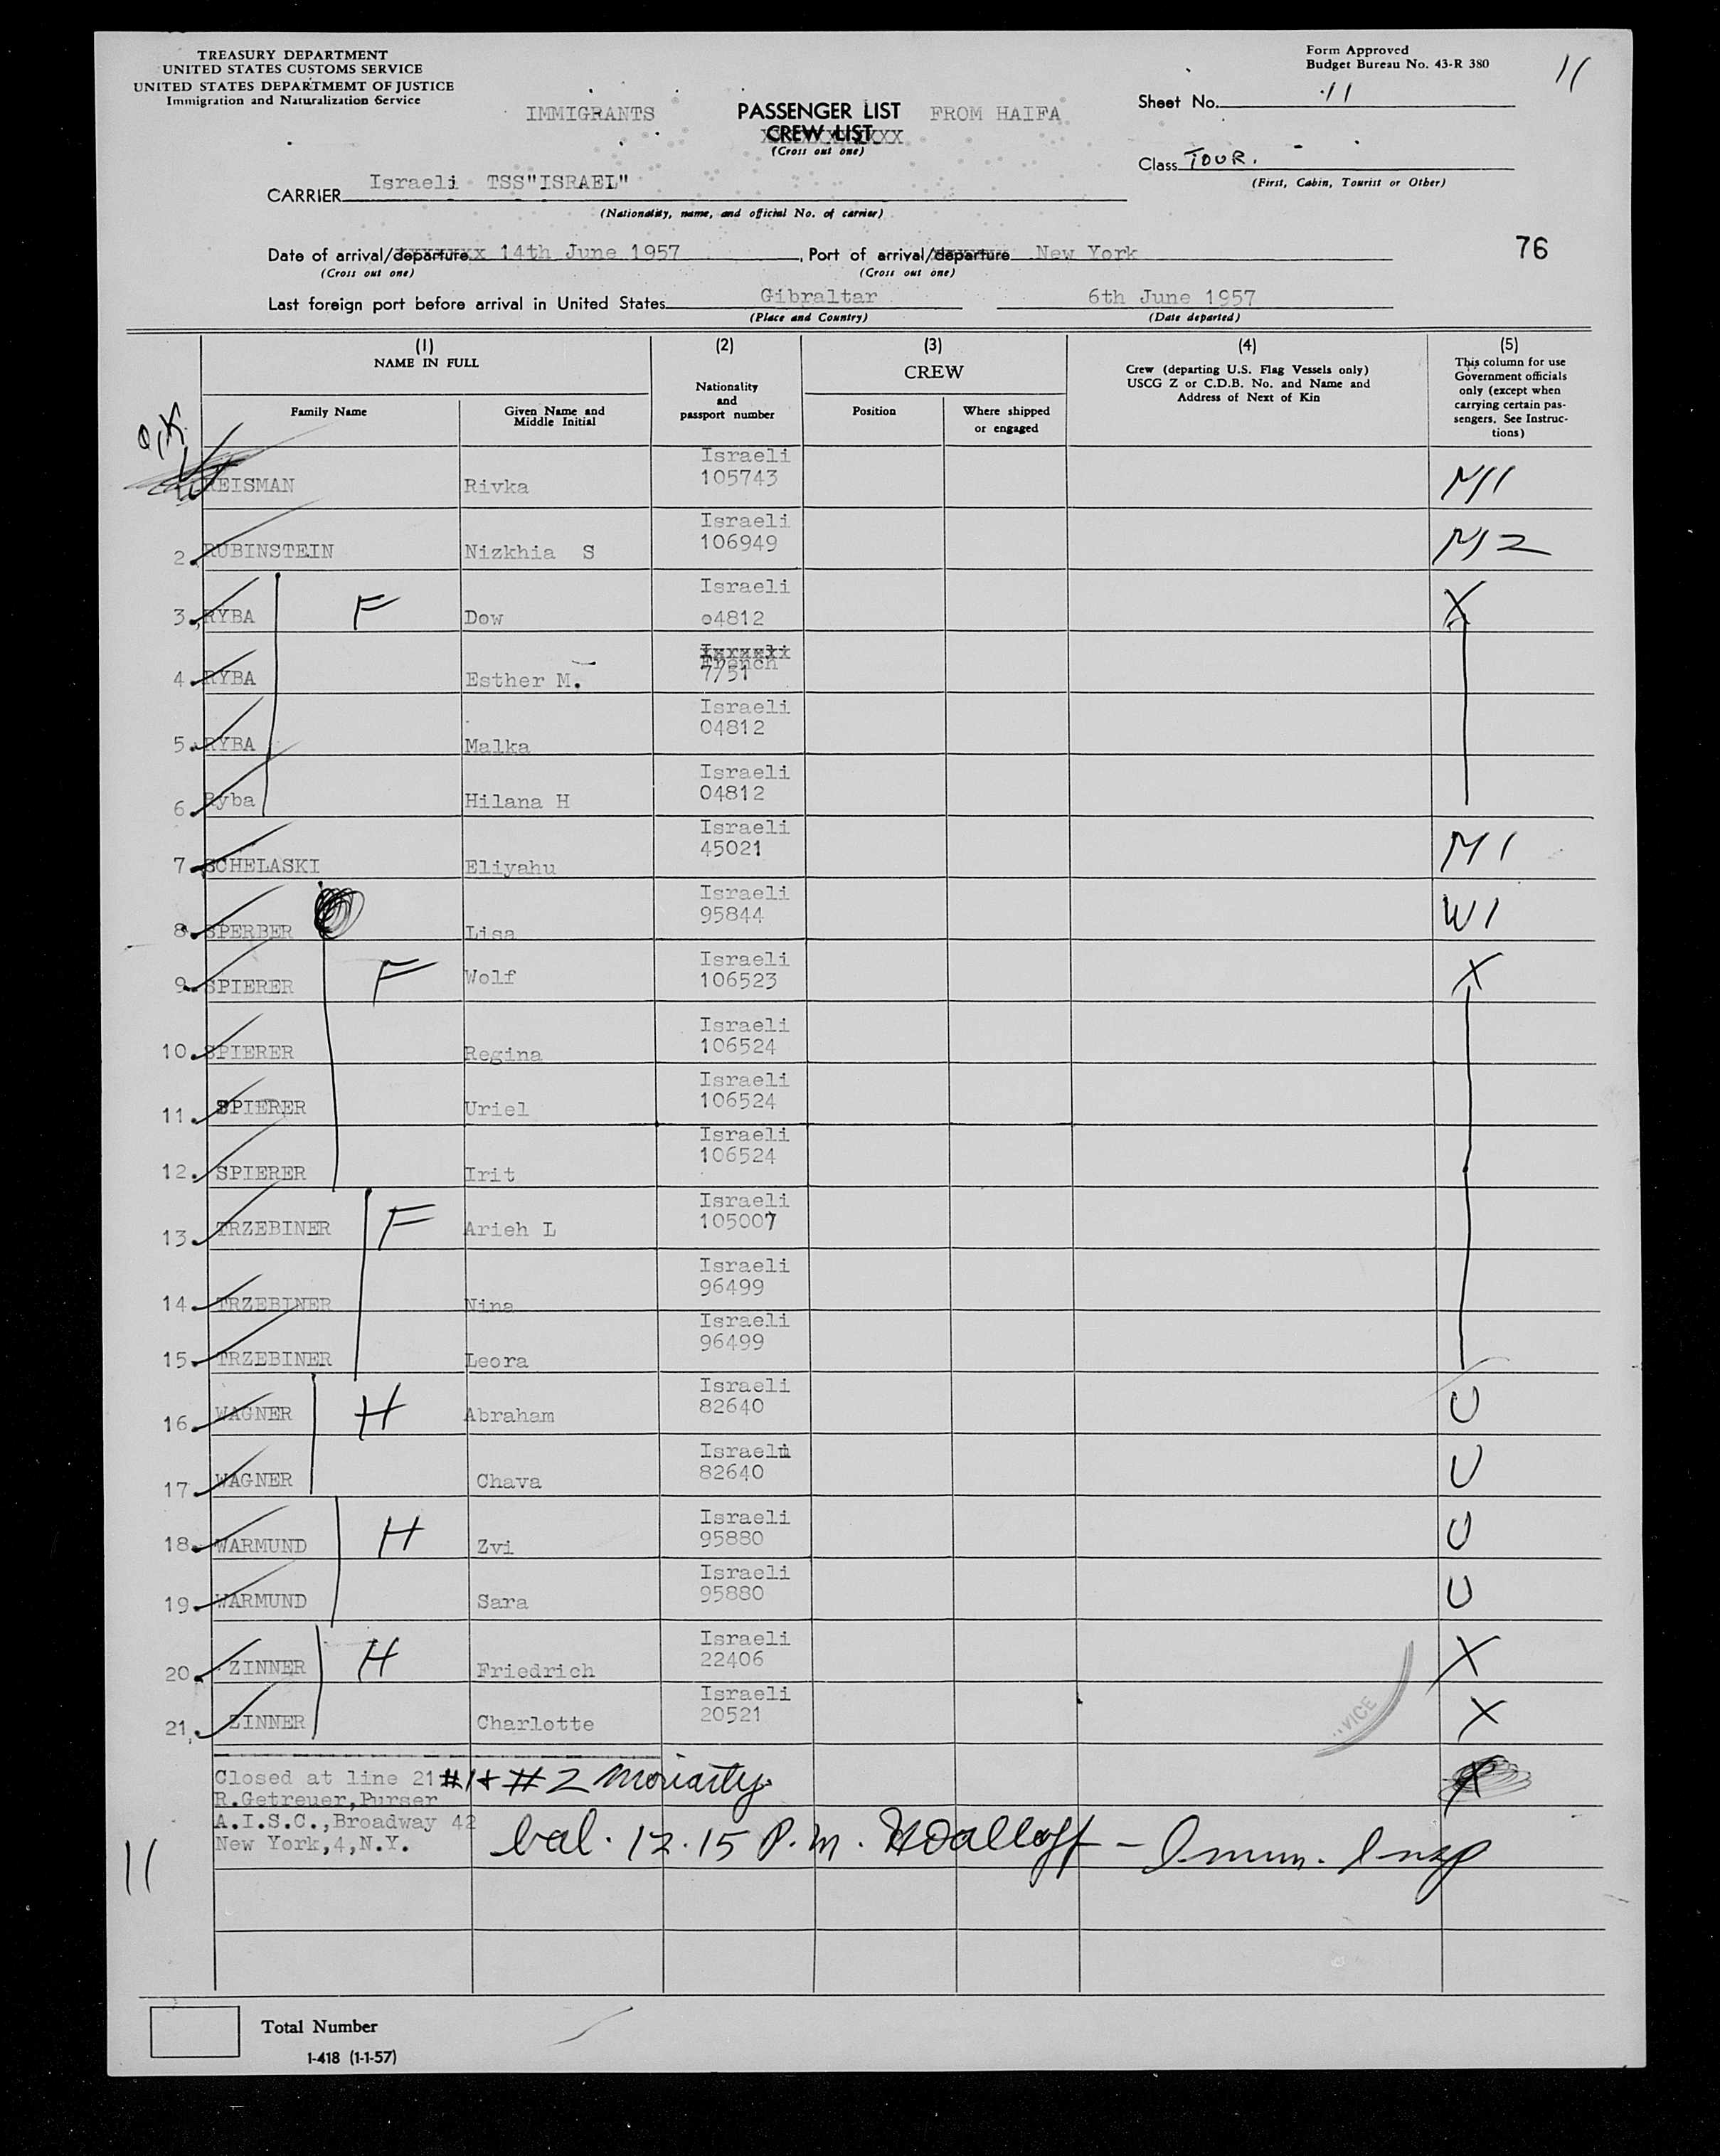 TREASURY DEPARTMENT
UNITED STATES CUSTOMS SERVICE
UNITED STATES DEPARTMEMT OF JUSTICE
Immigration and Naturalization Service
Form Approved
Budget Bureau No. 43-R 380
11
IMMIGRANTS PASSENGER LIST FROM HAIFA
CREW LIST
(Cross out one)
Sheet No. 11
Class TOUR.
(First, Cabin, Tourist or Other)
CARRIER Israeli TSS"ISRAEL"
(Nationality, name, and official No. of carrier)
Date of arrival/departure 14th June 1957, Port of arrival/departure New York
(Cross out one) (Cross out one)
76
Last foreign port before arrival in United States Gibraltar 6th June 1957
(Place and Country) (Date departed)
(1) NAME IN FULL
Family Name
Given Name and Middle Initial
(2)
Nationality and passport number
(3)
CREW
Position
Where shipped or engaged
(4)
Crew (departing U.S. Flag Vessels only)
USCG Z or C.D.B. No. and Name and
Address of Next of Kin
(5)
This column for use
Government officials
only (except when
carrying certain pas-
sengers. See Instruc-
tions)
O.K.
REISMAN Rivka Israeli 105743
2. RUBINSTEIN Nizkhia S Israeli 106949
3. RYBA F Dow Israeli o4812 X
4. RYBA Esther M. Israeli French 7/51
5. RYBA Malka Israeli 04812
6. Ryba Hilana H Israeli 04812
7. SCHELASKI Eliyahu Israeli 45021 M1
8. SPERBER Lisa Israeli 95844 W1
9. SPIERER F Wolf Israeli 106523 X
10. SPIERER Regina Israeli 106524
11. SPIERER Uriel Israeli 106524
12. SPIERER Irit Israeli 106524
13. TRZEBINER F Arieh L Israeli 105007
14. TRZEBINER Nina Israeli 96499
15. TRZEBINER Leora Israeli 96499
16. WAGNER H Abraham Israeli 82640 U
17. WAGNER Chava Israeli 82640 U
18. WARMUND H Zvi Israeli 95880 U
19. WARMUND Sara Israeli 95880 U
20. ZINNER H Friedrich Israeli 22406 X
21. ZINNER Charlotte Israeli 20521 X
VICE
Closed at line 21 #1+ #2 Moriarty. X
R.Getreuer,Purser
A.I.S.C.,Broadway 42
New York,4,N.Y.
bal. 12.15 P.M. - Imm. Insp
11
Total Number
1-418 (1-1-57)